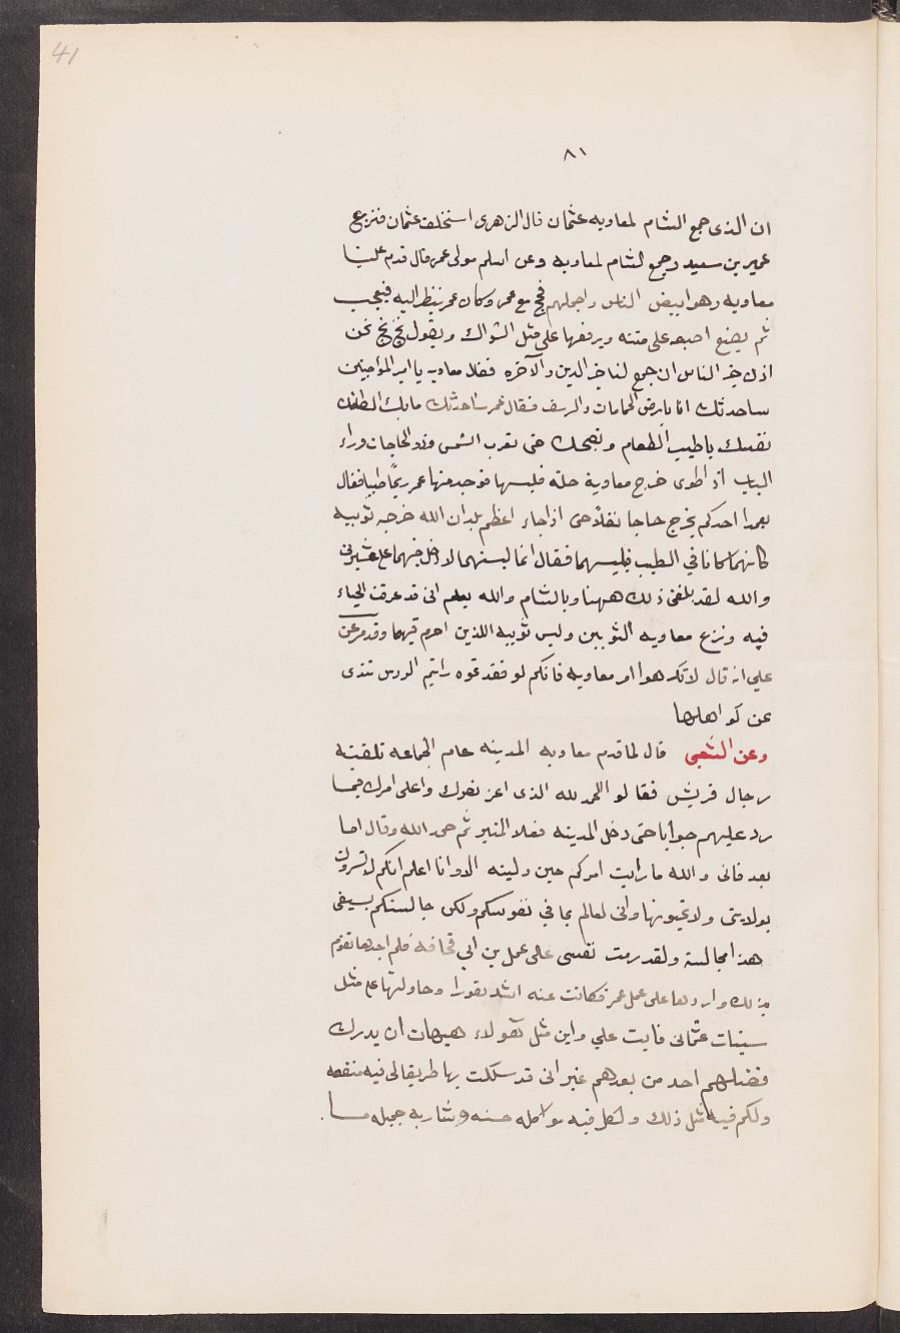 41
٨١
ان الذى جمع الشام لمعاويه عثمان قال الزهرى استخلف عثمان فنزع
عمير بن سعيد وجمع الشام لمعاويه وعن اسلم مولى عمر قال قدم علينا
معاويه وهو ابيض الناس واجملهم فحج مع عمر وكان عمر ينظر اليه فيعجب
ثم يضع اصبعه على متنه ويرفعها على مثل الشواك ويقول بخ بخ نحن
اذن خير الناس ان جمع لنا خير الدين والآخره فقال معاويه يا امير المؤمنين
ساحدثك انا بارض الحمامات والريف فقال عمر ساحدثك مابك الطافك
نفسك باطيب الطعام وتصبحك حتى تغرب الشمس وذو الحاجات وراء
الباب اذ اطوى خرج معاوية حلة فلبسها فوجد منها عمر ريحًا طيبا فقال
يعمدا احدكم يخرج حاجا تفلا حتى اذا جاء اعظم بلدان الله خرجه ثوبيه
كانهما كانا في الطيب فلبسهما فقال انما لبستهما لادخل فيهما على عشيرتى
والله لقد بلغنى ذلك ههنا وبالشام والله يعلم انى قد عرفت الحياء
فيه ونزع معاويه الثوبين ولبس ثوبيه اللذين احرم فيهما وقد مر عن
علي انه قال لا تكرهوا امر معاويه فانكم لو فقدتموه رايتم الروس تندى
عن كواهلها
وعن الشعبى قال لما قدم معاويه المدينه عام الجماعه تلقيته
رجال قريش فقالو الحمد لله الذى اعز نصرك واعلى امرك فيما
رد عليهم جوابا حتى دخل المدينه فعلا المنبر ثم حمد الله وقال اما
بعد فانى والله ما رايت امركم حين وليته الا وانا اعلم انكم لا تسرون
بولايتى ولا تحبونها وانى لعالم بما في نفوسكم ولكن جالستكم بسيفى
هذا مجالسة ولقد رمت نفسى على عمل بن ابي قحافة فلم اجدها تقوم
بذلك واردتها على عمل عمر فكانت عنه اشد نفورا وحاولتها على مثل
سينات عثمانى فابت علي واين مثل هؤلاء هيهات ان يدرك
فضلهم احد من بعدهم غير انى قد سلكت بها طريقا لى فيه منفعه
ولكم فيه مثل ذلك ولكل فيه مواكله حسنه ومشاربه جميله ما